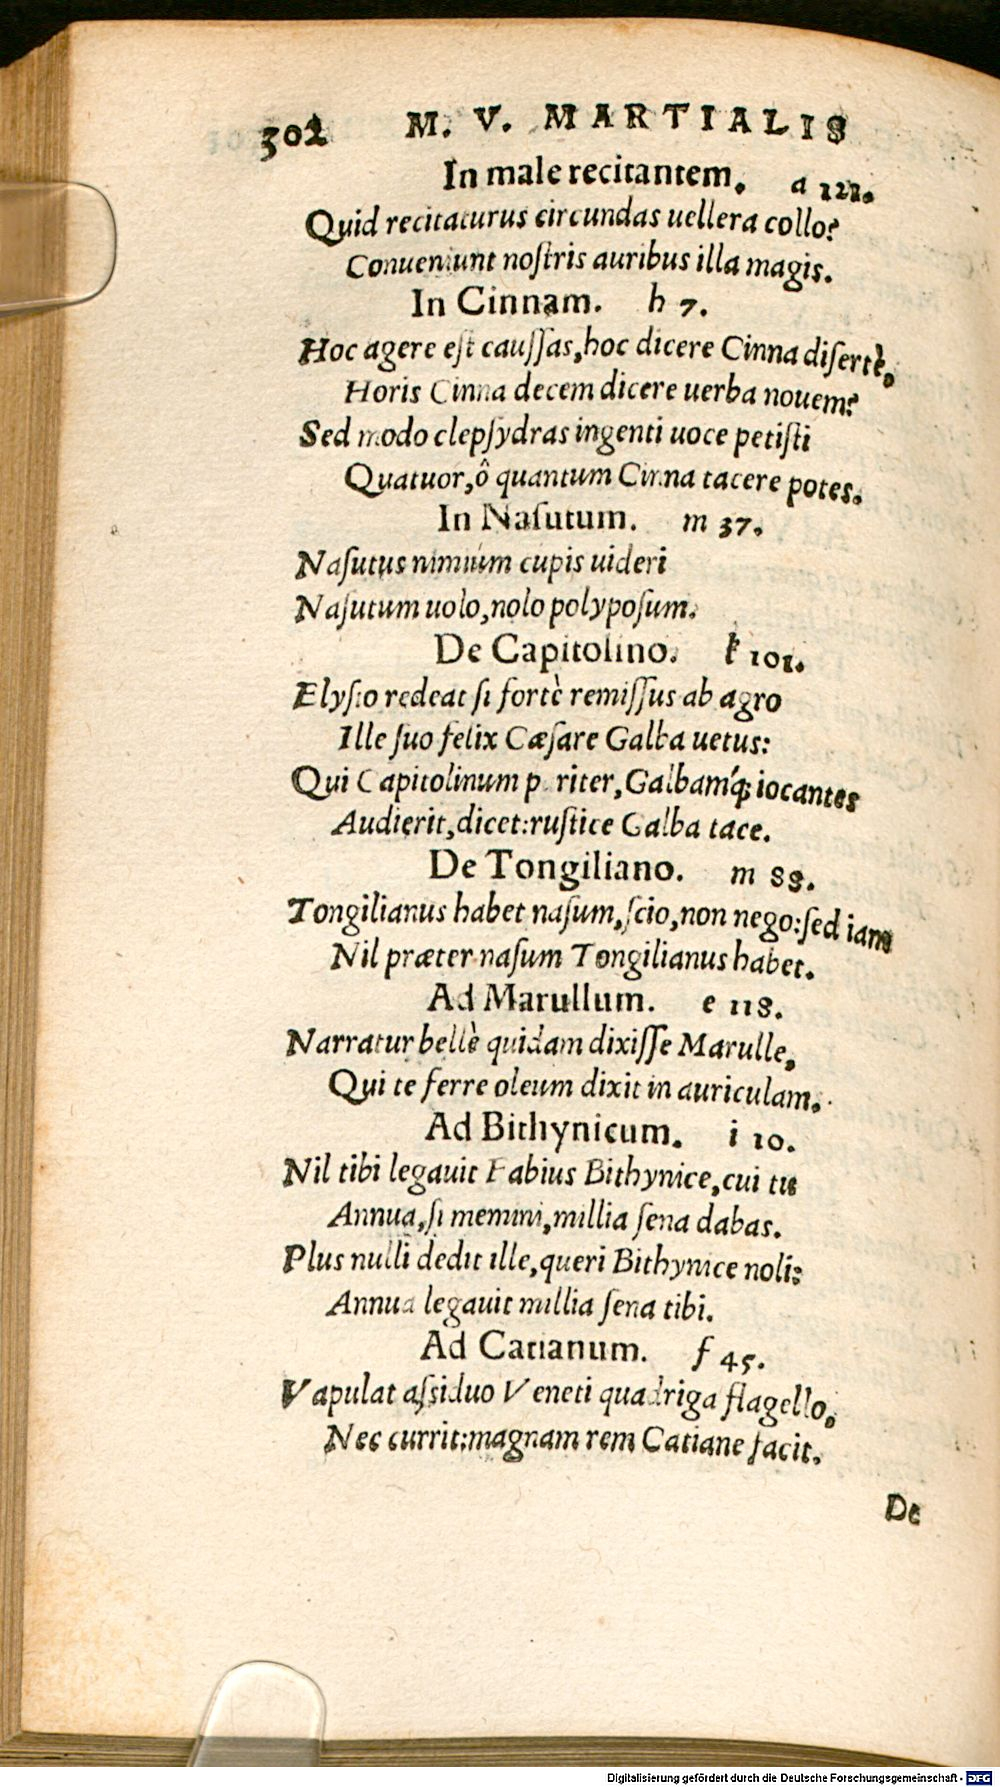 302 M. V. MARTIALIS
In male recitantem. a 122.
Quid recitaturus circundas uellera collo?
Conueniunt noſtris auribus illa magis.
In Cinnam. h 7.
Hoc agere eſt cauſſas, hoc dicere Cinna diſertè,
Horis Cinna decem dicere uerba nouem?
Sed modo clepſydras ingenti uoce petiſti
Quatuor, ô quantum Cinna tacere potes.
In Naſutum. m 37.
Naſutus nimium cupis uideri
Naſutum uolo, nolo polypoſum.
De Capitolino. k 101.
Elyſio redeat ſi fortè remiſſus ab agro
Ille ſuo felix Cæſare Galba uetus:
Qui Capitolinum pariter, Galbamq́; iocantes
Audierit, dicet: ruſtice Galba tace.
De Tongiliano. m 88.
Tongilianus habet naſum, ſcio, non nego: ſed iam
Nil præter naſum Tongilianus habet.
Ad Marullum. e 118.
Narratur bellè quidam dixiſſe Marulle,
Qui te ferre oleum dixit in auriculam.
Ad Bithynicum. i 10.
Nil tibi legauit Fabius Bithynice, cui tu
Annua, ſi memini, millia ſena dabas.
Plus nulli dedit ille, queri Bithynice noli:
Annua legauit millia ſena tibi.
Ad Catianum. f 45.
Vapulat aſsiduo Veneti quadriga flagello,
Nec currit: magnam rem Catiane facit.
De
Digitalisierung gefördert durch die Deutsche Forschungsgemeinschaft - DFG